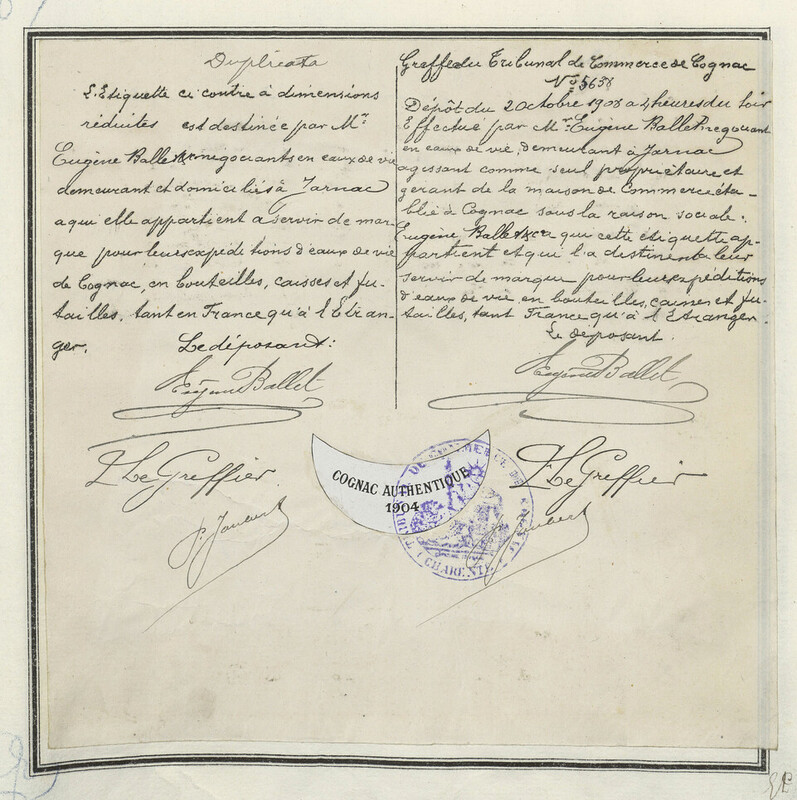 Duplicata
L'Etiquette ci contre à dimensions
réduites est destinée par Mr.
Eugène Ballet negouants en eaux de vie
demeurant et domiciliés à Jarnac
a qui elle appartient a servir de mar
que pour leurs expéditions d'eaux de vie
de Cognac, en bouteilles, caisses et fu-
tailles, tant en France qu'à l'Etran-
ger.
Le déposant:
Eugène Ballet
Le Greffier
Greffe du Tribunal de Commerce de Cognac
No 5638
Dépôt du 2 Octobre 1908 a 4 heures du soir
Effectué par Mr. Eugène Ballet negouant
en eaux de vie, demeurant à Jarnac
agissant comme seul propriétaire et
gérant de la maison de Commerce éta-
blie à Cognac sous la raison sociale:
Eugène Ballet & Ca a qui cette étiquette ap-
partient et qui l'a destinent a leur
servir de marque pour leurs expéditions
d'eaux de vie, en bouteilles, caisses et fu-
tailles, tant France qu'à l'Etranger.
Le déposant.
Eugène Ballet
Le Greffier
COGNAC AUTHENTIQUE
1904
TRIBUNAL DE COMMERCE DE COGNAC
(CHARENTE)